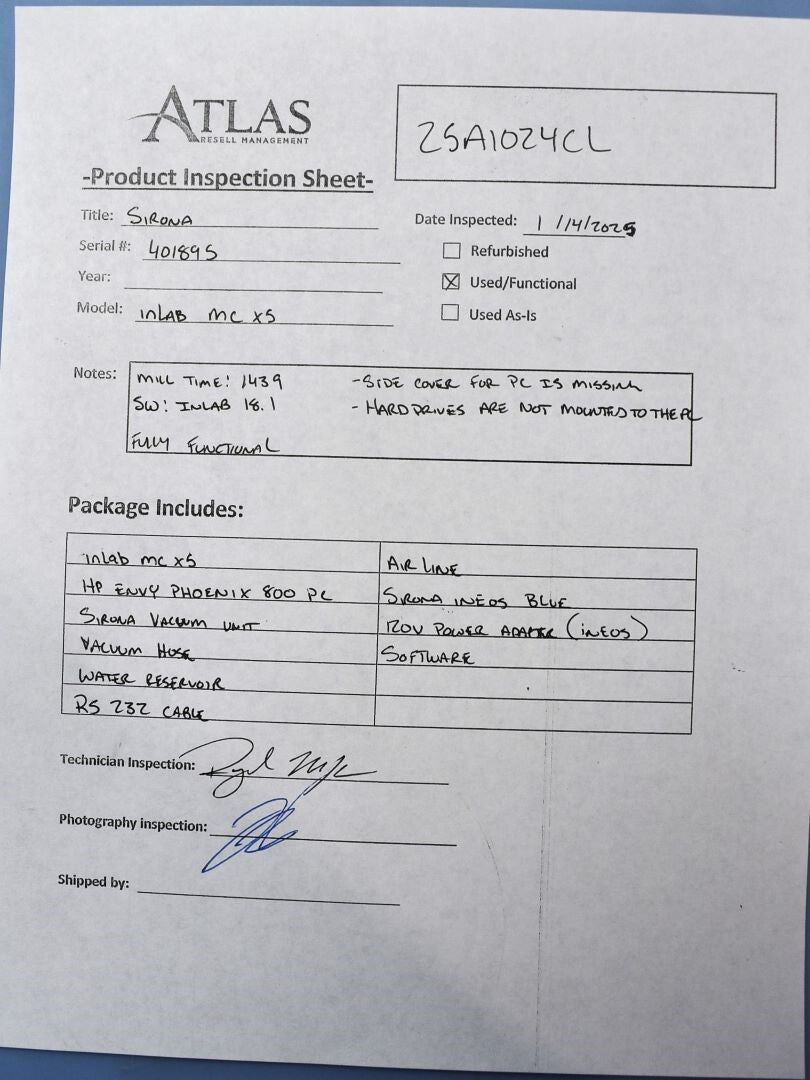 ATLAS
RESELL MANAGEMENT
25A1024CL
-Product Inspection Sheet-
Title: SIRONA
Date Inspected: 1/14/2025
Serial #: 401895
Refurbished
Year:
Used/Functional
Model: INLAB MC X5
Used As-Is
Notes:
MILL TIME: 1439
-SIDE COVER FOR PC IS MISSING
SW: INLAB 18.1
- HARD DRIVES ARE NOT MOUNTED TO THE PC
FULLY FUNCTIONAL
Package Includes:
inLab MC X5
AIR LINE
HP ENVY PHOENIX 800 PC
SIRONA INEOS BLUE
SIRONA VACUUM UNIT
120V POWER ADAPTER (INEOS)
VACUUM HOSE
SOFTWARE
WATER RESERVOIR
RS 232 CABLE
Technician Inspection:
Photography inspection:
Shipped by: